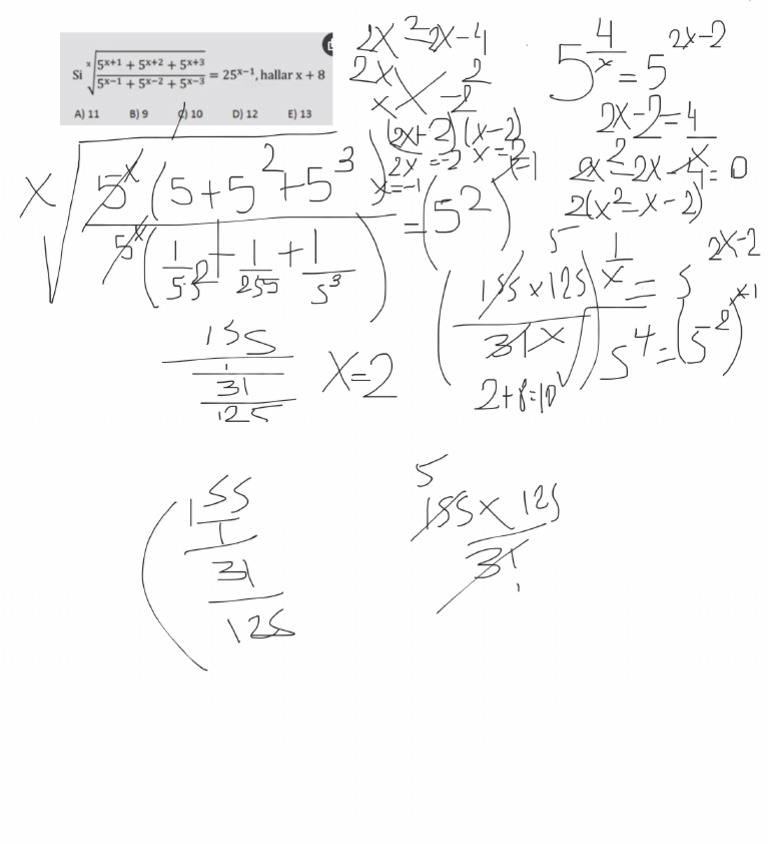 Si ˣ√((5ˣ⁺¹ + 5ˣ⁺² + 5ˣ⁺³)/(5ˣ⁻¹ + 5ˣ⁻² + 5ˣ⁻³)) = 25ˣ⁻¹, hallar x + 8
A) 11 B) 9 C) 10 D) 12 E) 13
2x²-2x-4
2x 2
x -2
(2x+2)(x-2)
2x=-2 x=2
x=-1
5^(4/x) = 5^(2x-2)
2x-2=4/x
2x²-2x-4=0
2(x²-x-2)
x√(5ˣ(5+5²+5³)
= (5²)ˣ⁻¹
155
31
125
x=2
5
(155x125
31
)^(1/x) = 5^(2x-2)
5⁴=(5²)ˣ⁻¹
2+8=10
155
1
31
125
5
155x125
31